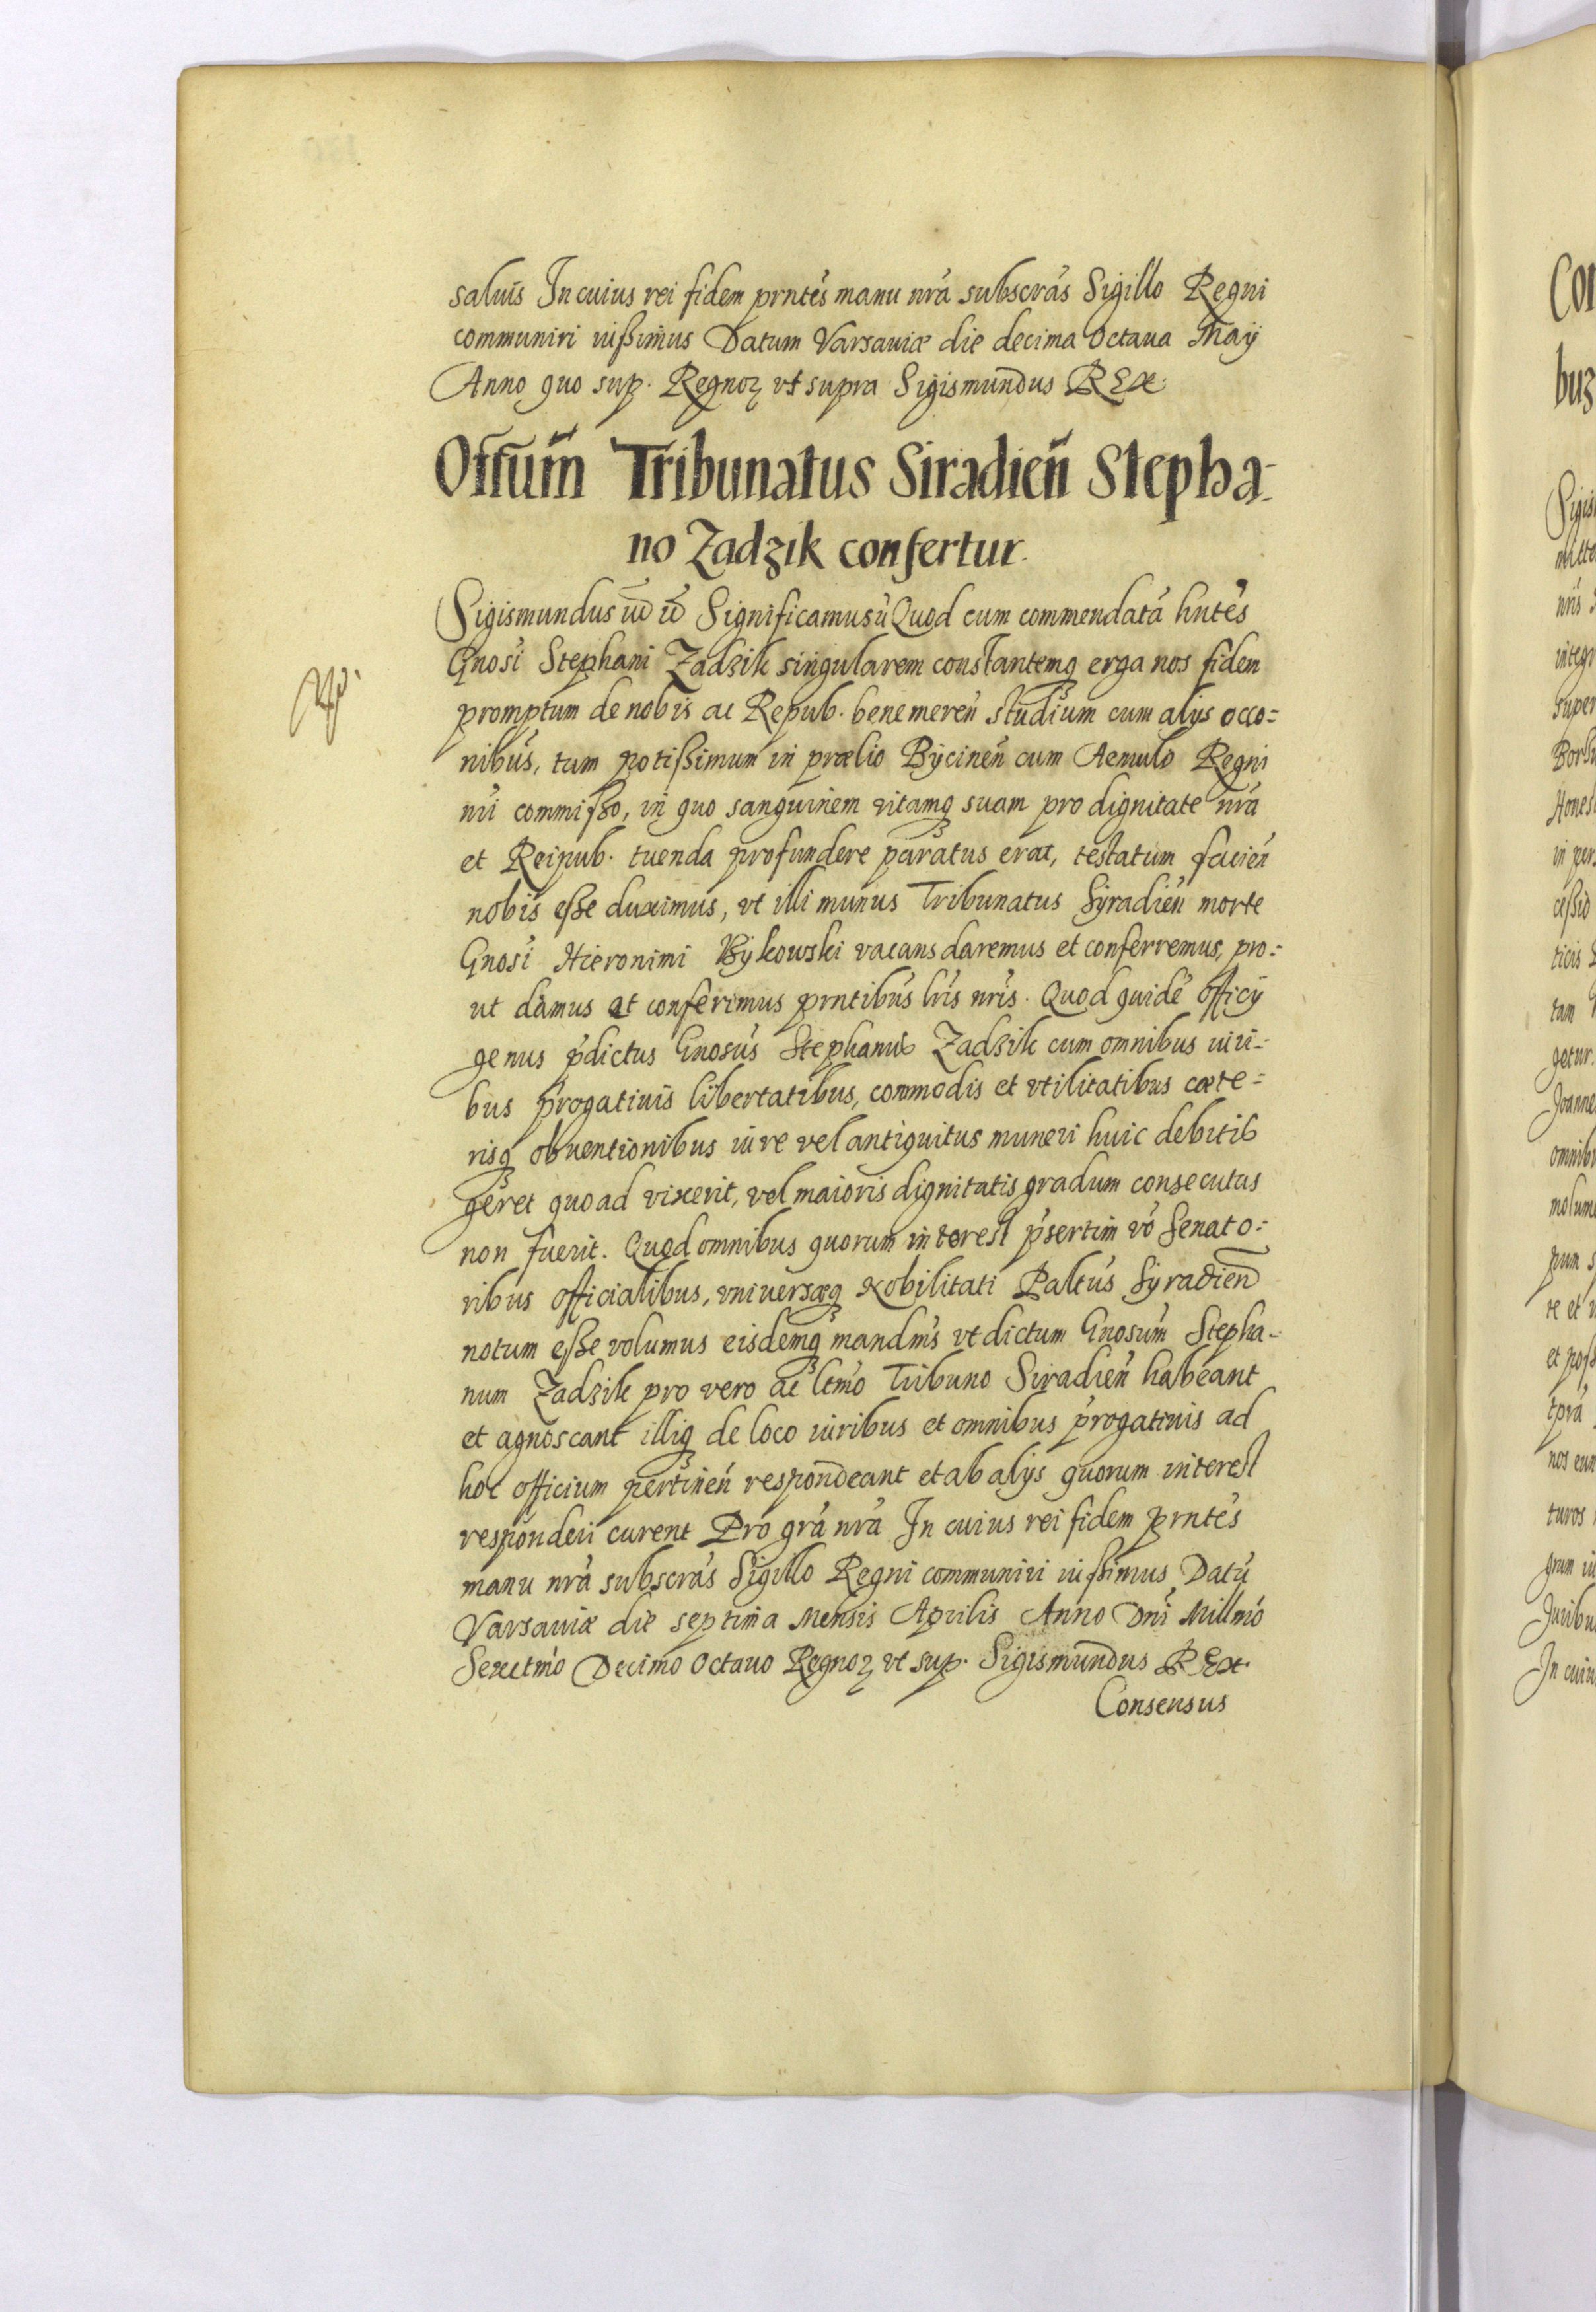 saluis In cuius rei fidem prntes manu nrã subscrãs Sigillo Regni
communiri iussimus Datum Varsauiæ die decima Octaua Maÿ
Anno quo sup. Regnoꝝ vt supra Sigismundus REX
Offium̃ Tribunatus Siradien̄ Stepha-
no Zadzik confertur.
Sigismundus Significamus Quod cum commendatã hntẽs
Gnosi Stephani Zadzik singularem constantemq̃ erga nos fidem
promptum de nobis ac Repub. benemeren̄ studium cum alÿs occo=
nibus, tum potissimum in prælio Bÿcinen̄ cum Aemulo Regni
nrĩ commisso, in quo sanguinem vitamq̃ suam pro dignitate nrã
et Reipub. tuenda profundere paratus erat, testatum facien̄
nobis esse duximus, vt illi munus Tribunatus Syradien̄ morte
Gnosi Hieronimi Bÿkowski vacans daremus et conferremus, pro=
ut damus et conferimus prntibus lrĩs nrĩs. Quod quidẽ officÿ
genus p̃dictus Gnosus Stephanus Zadzik cum omnibus iuri=
bus p̃rogatiuis libertatibus, commodis et vtilitatibus cæte=
risq̃ obuentionibus iure vel antiquitus muneri huic debitis
geret quoad vixerit, vel maioris dignitatis gradum consecutus
non fuerit. Quod omnibus quorum interest p̃sertim võ Senato=
ribus officialibus, vniuersæq̃ Nobilitati Paltũs Syradien̄
notum esse volumus eisdemq̃ mandm̃s vt dictum Gnosum Stepha-
num Zadzik pro vero ac ltm̃o Tribuno Siradien̄ habeant
et agnoscant illiq̃ de loco iuribus et omnibus p̃rogatiuis ad
hoc officium pertinen̄ respondeant et ab alÿs quorum interest
responderi curent Pro grã nrã In cuius rei fidem prntẽs
manu nrã subscrãs Sigillo Regni communiri iussimus Datũ
Varsauiæ die septima Mensis Aprilis Anno Dnĩ Millmõ
Sexctmõ Decimo Octauo Regnoꝝ vt sup. Sigismundus REX
Consensus